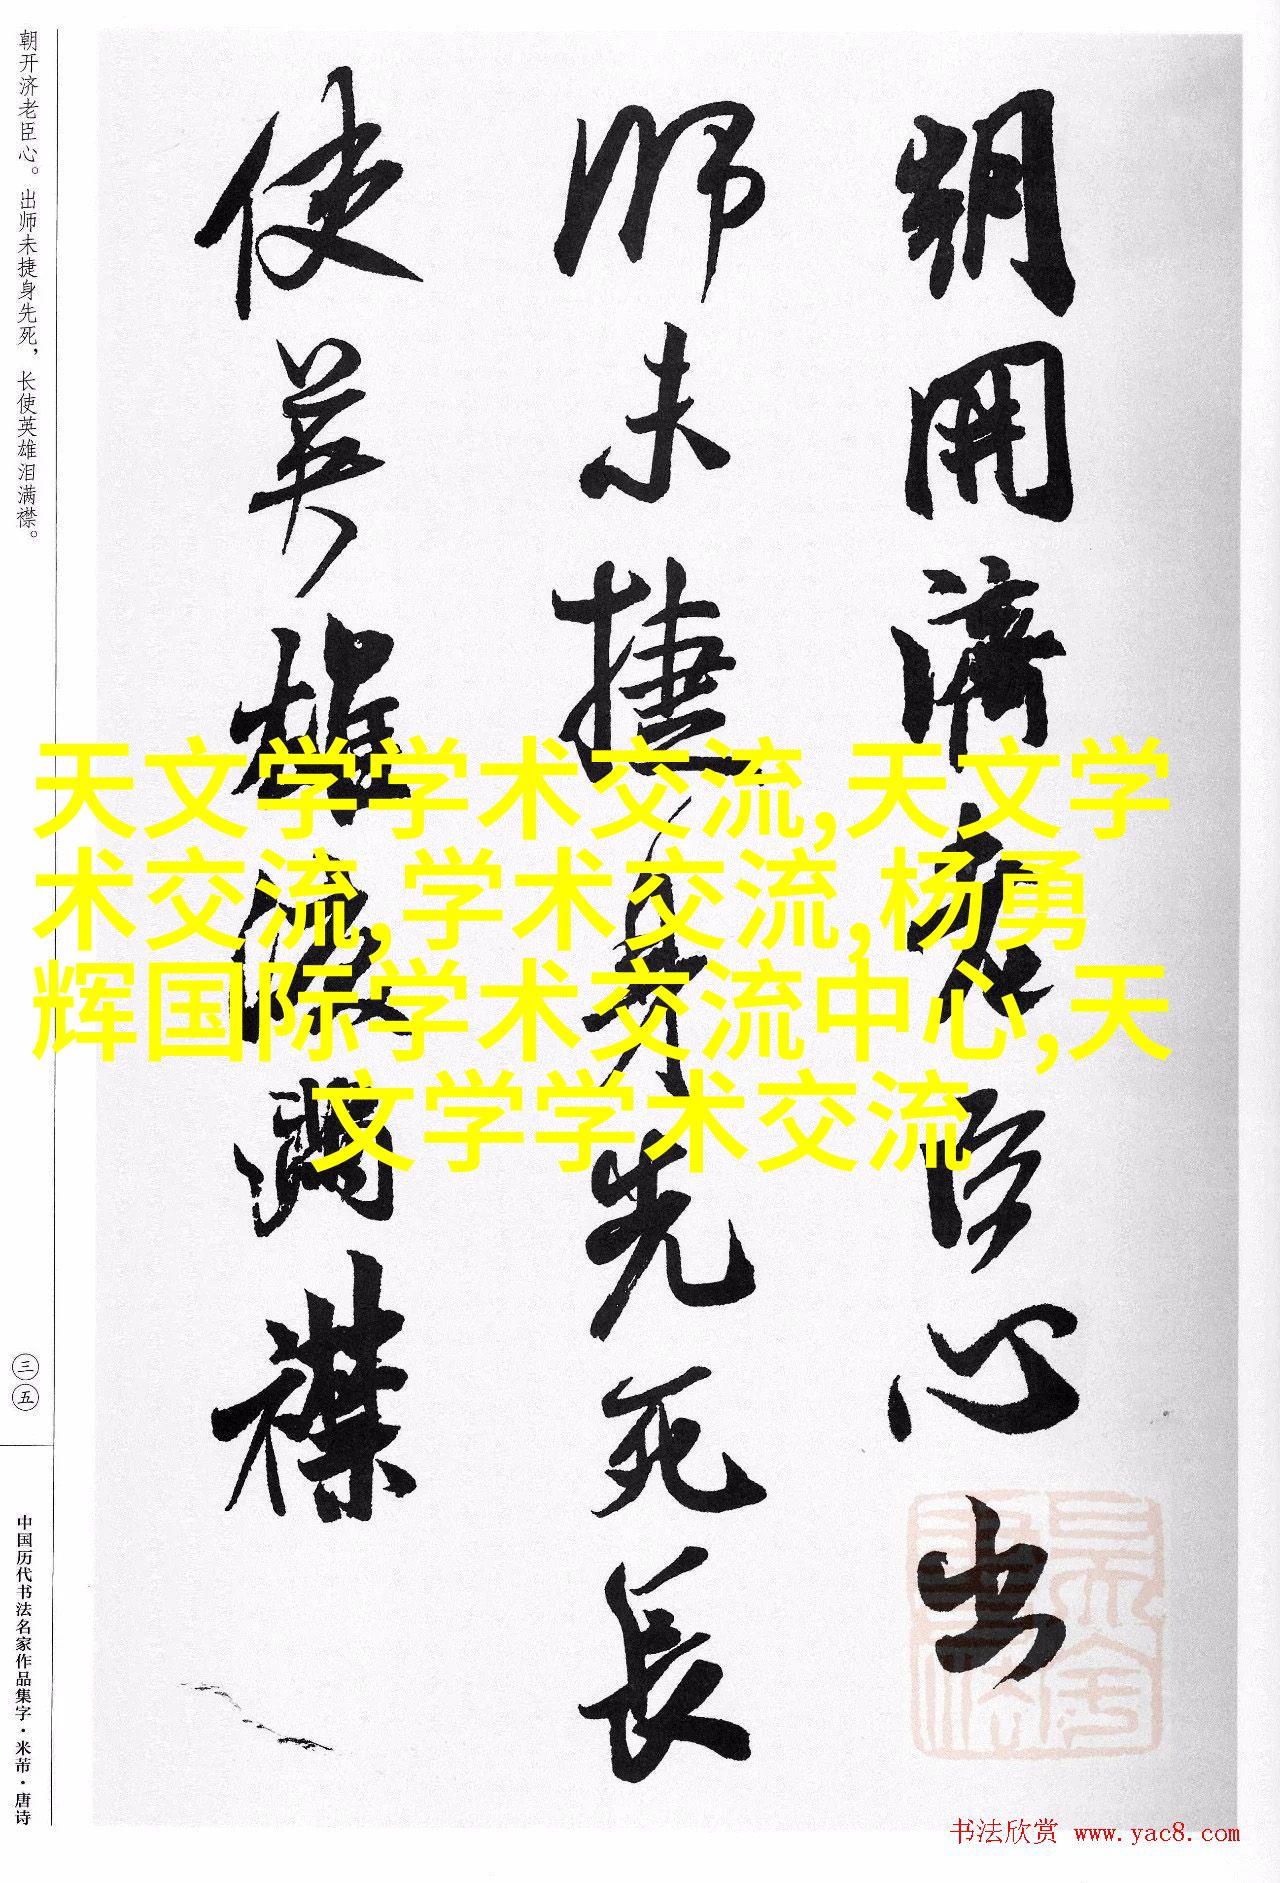 朝开济老臣心。出师未捷身先死，长使英雄泪满襟。
三五
中国历代书法名家作品集字·米芾·唐诗
朝開濟老臣心出
師未捷身先死長
使英雄淚满襟
天文学学术交流,天文学
术交流,学术交流,杨勇
辉国际学术交流中心,天
文学学术交流
书法欣赏 www.yac8.com